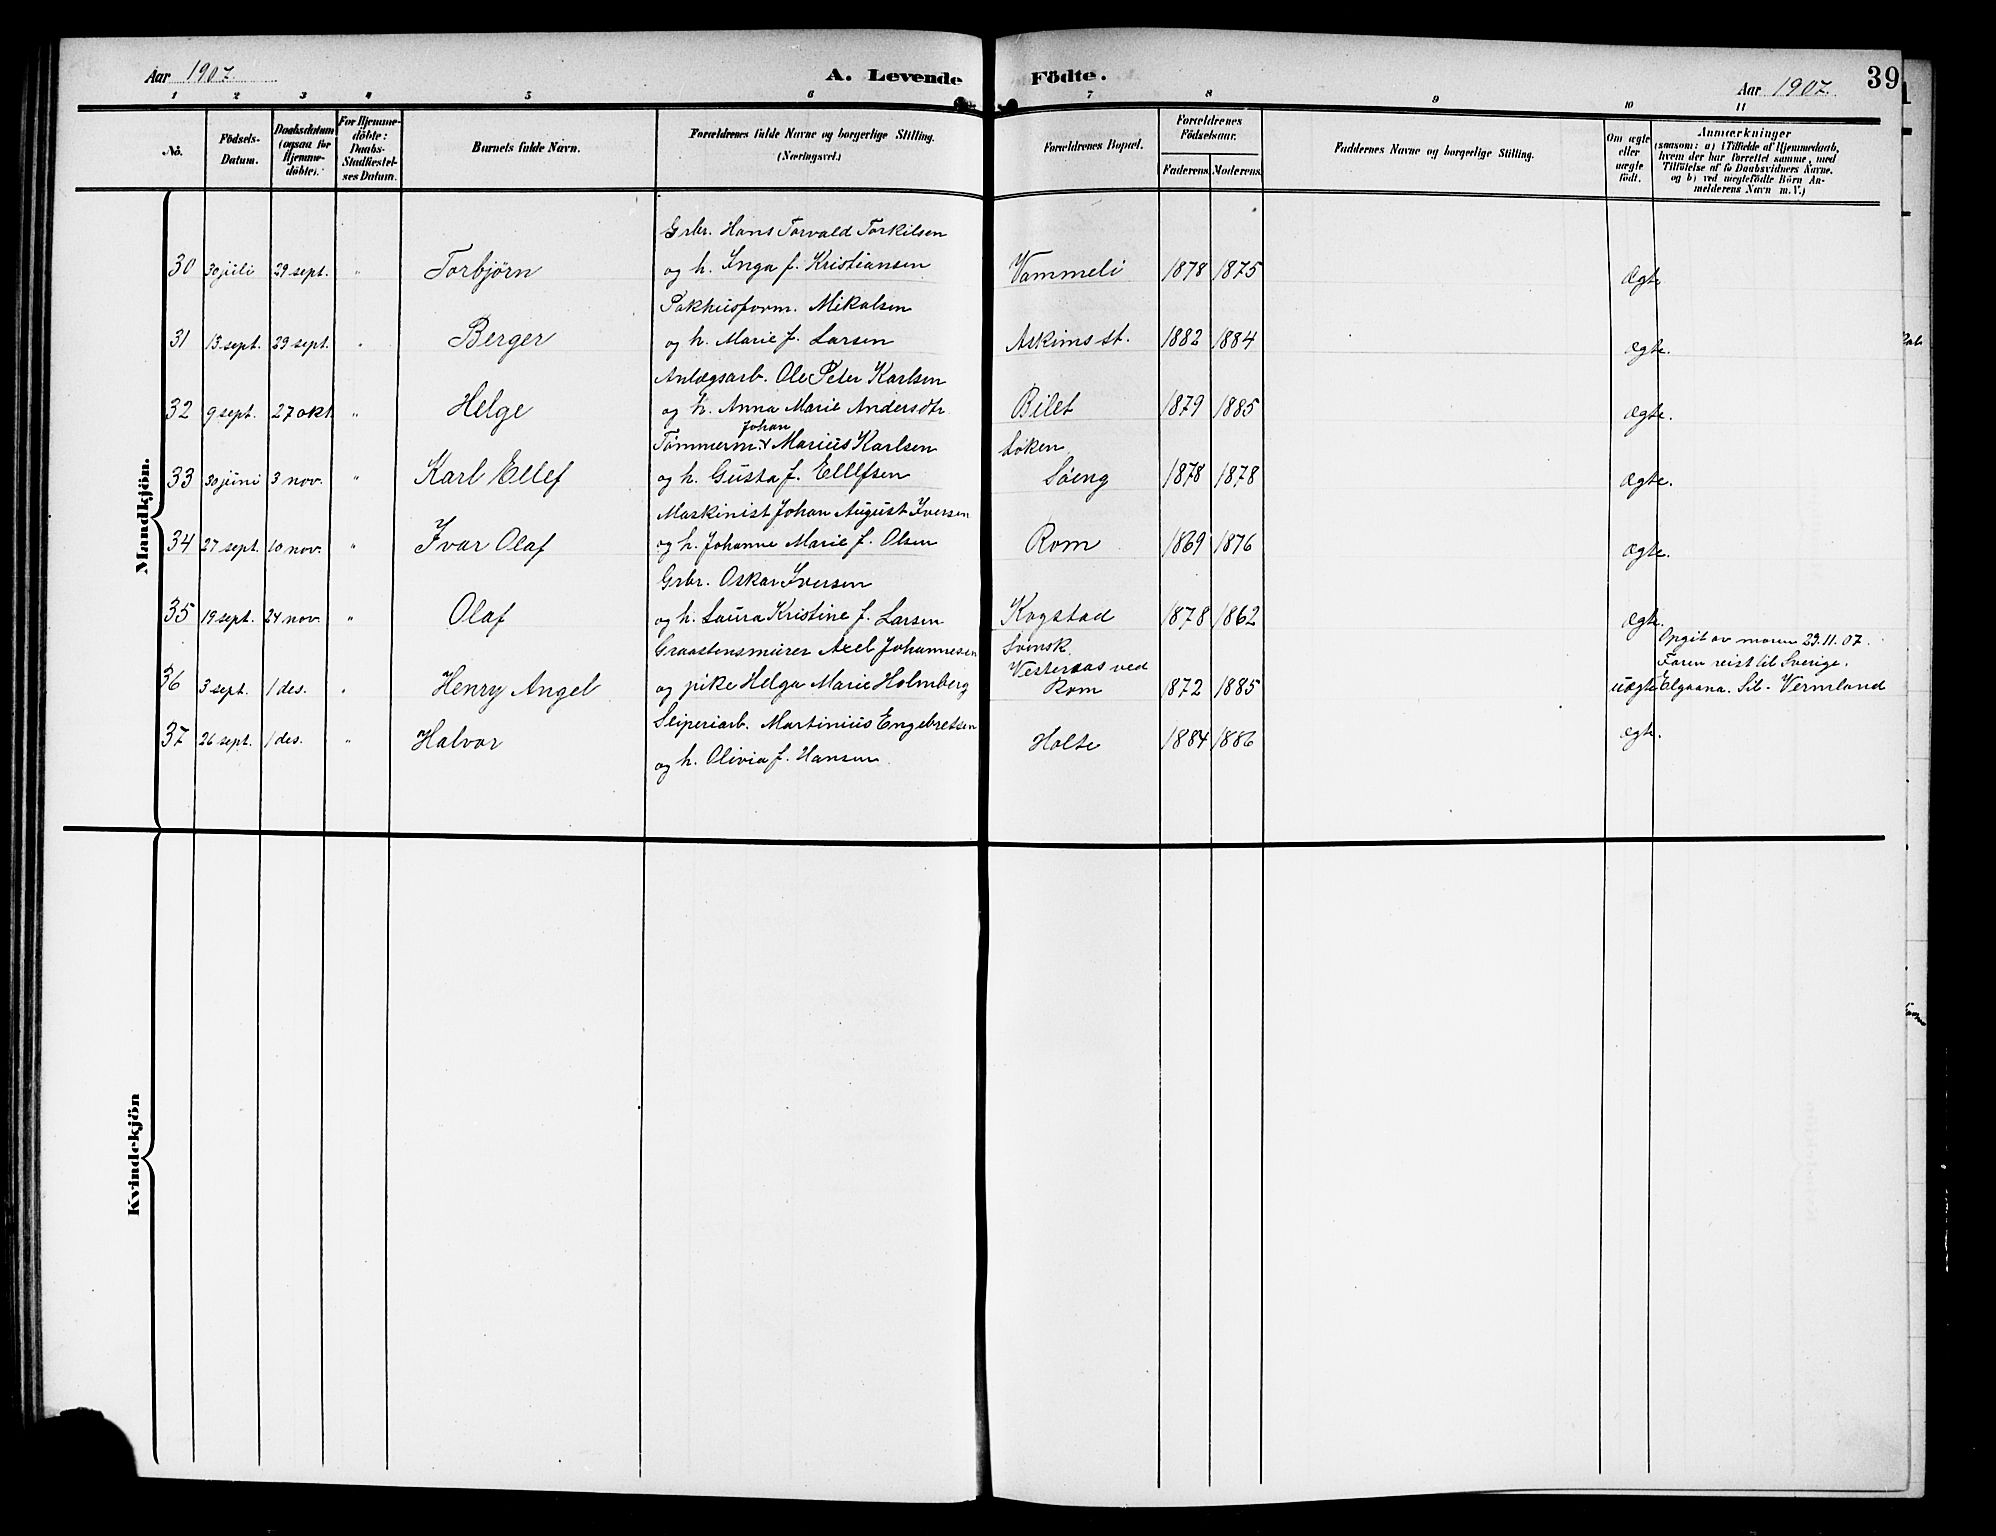 Aar 1907. A. Levende Födte. Aar 1907. 39
1 2 3 4 5 6 7 8 9 10 11
No. Födsels-Datum. Daabsdatum (ogsaa for Hjemmedöbte). For Hjemmedöbte: Daabs-Stadfæstelses Datum. Barnets fulde Navn. Forældrenes fulde Navne og borgerlige Stilling. (Næringsvei.) Forældrenes Bopæl. Forældrenes Födselsaar. Faderens. Moderens. Faddernes Navne og borgerlige Stilling. Om ægte eller uægte födt. Anmærkninger (saasom: a) i Tilfælde af Hjemmedaab, hvem der har forrettet samme, med Tilföielse af to Daabsvidners Navne, og b) ved uægtefödte Börn Anmelderens Navn m. V.)
Mandkjön.
Grbr. Hans Torvald Torkilsen
30 30 juli 29 sept. " Torbjørn og h. Inga f. Kristiansen Vammeli 1878 1875 Ægte
Pakhusform. Mikalsen
31 13 sept. 29 sept. " Berger og h. Marie f. Larsen Askims st. 1882 1884 ægte.
Anlægsarb. Ole Peter Karlsen
32 9 sept. 27 okt " Helge og h. Anna Marie Andersdtr Bilet 1879 1885 ægte.
Johan
Tømmerm. Marius Karlsen Løken
33 30 juni 3 nov. " Karl Ellef og h. Gusta f. Ellefsen Søeng 1878 1878 ægte.
Maskinist Johan August Iversen
34 27 sept. 10 nov. " Ivar Olaf og h. Johanne Marie f. Olsen Rom 1869 1876 ægte.
Grbr. Oskar Iversen
35 19 sept. 24 nov. " Olaf og h. Laura Kristine f. Larsen Kogstad 1878 1862 ægte.
Graastensmurer Axel Johannesen Svensk. Opgit av moren 29.11.07.
Vesteraas ved Faren reist til Sverige.
36 3 sept. 1 des. " Henry Angel og pike Helga Marie Holmberg Rom 1872 1885 uægte Elgaana. Sil- Vermland
Sliperiarb. Martinius Engebretsen
37 26 sept. 1 des. " Halvor Holte 1884 1886 ægte.
og h. Olivia f. Hansen
Kvindekjön